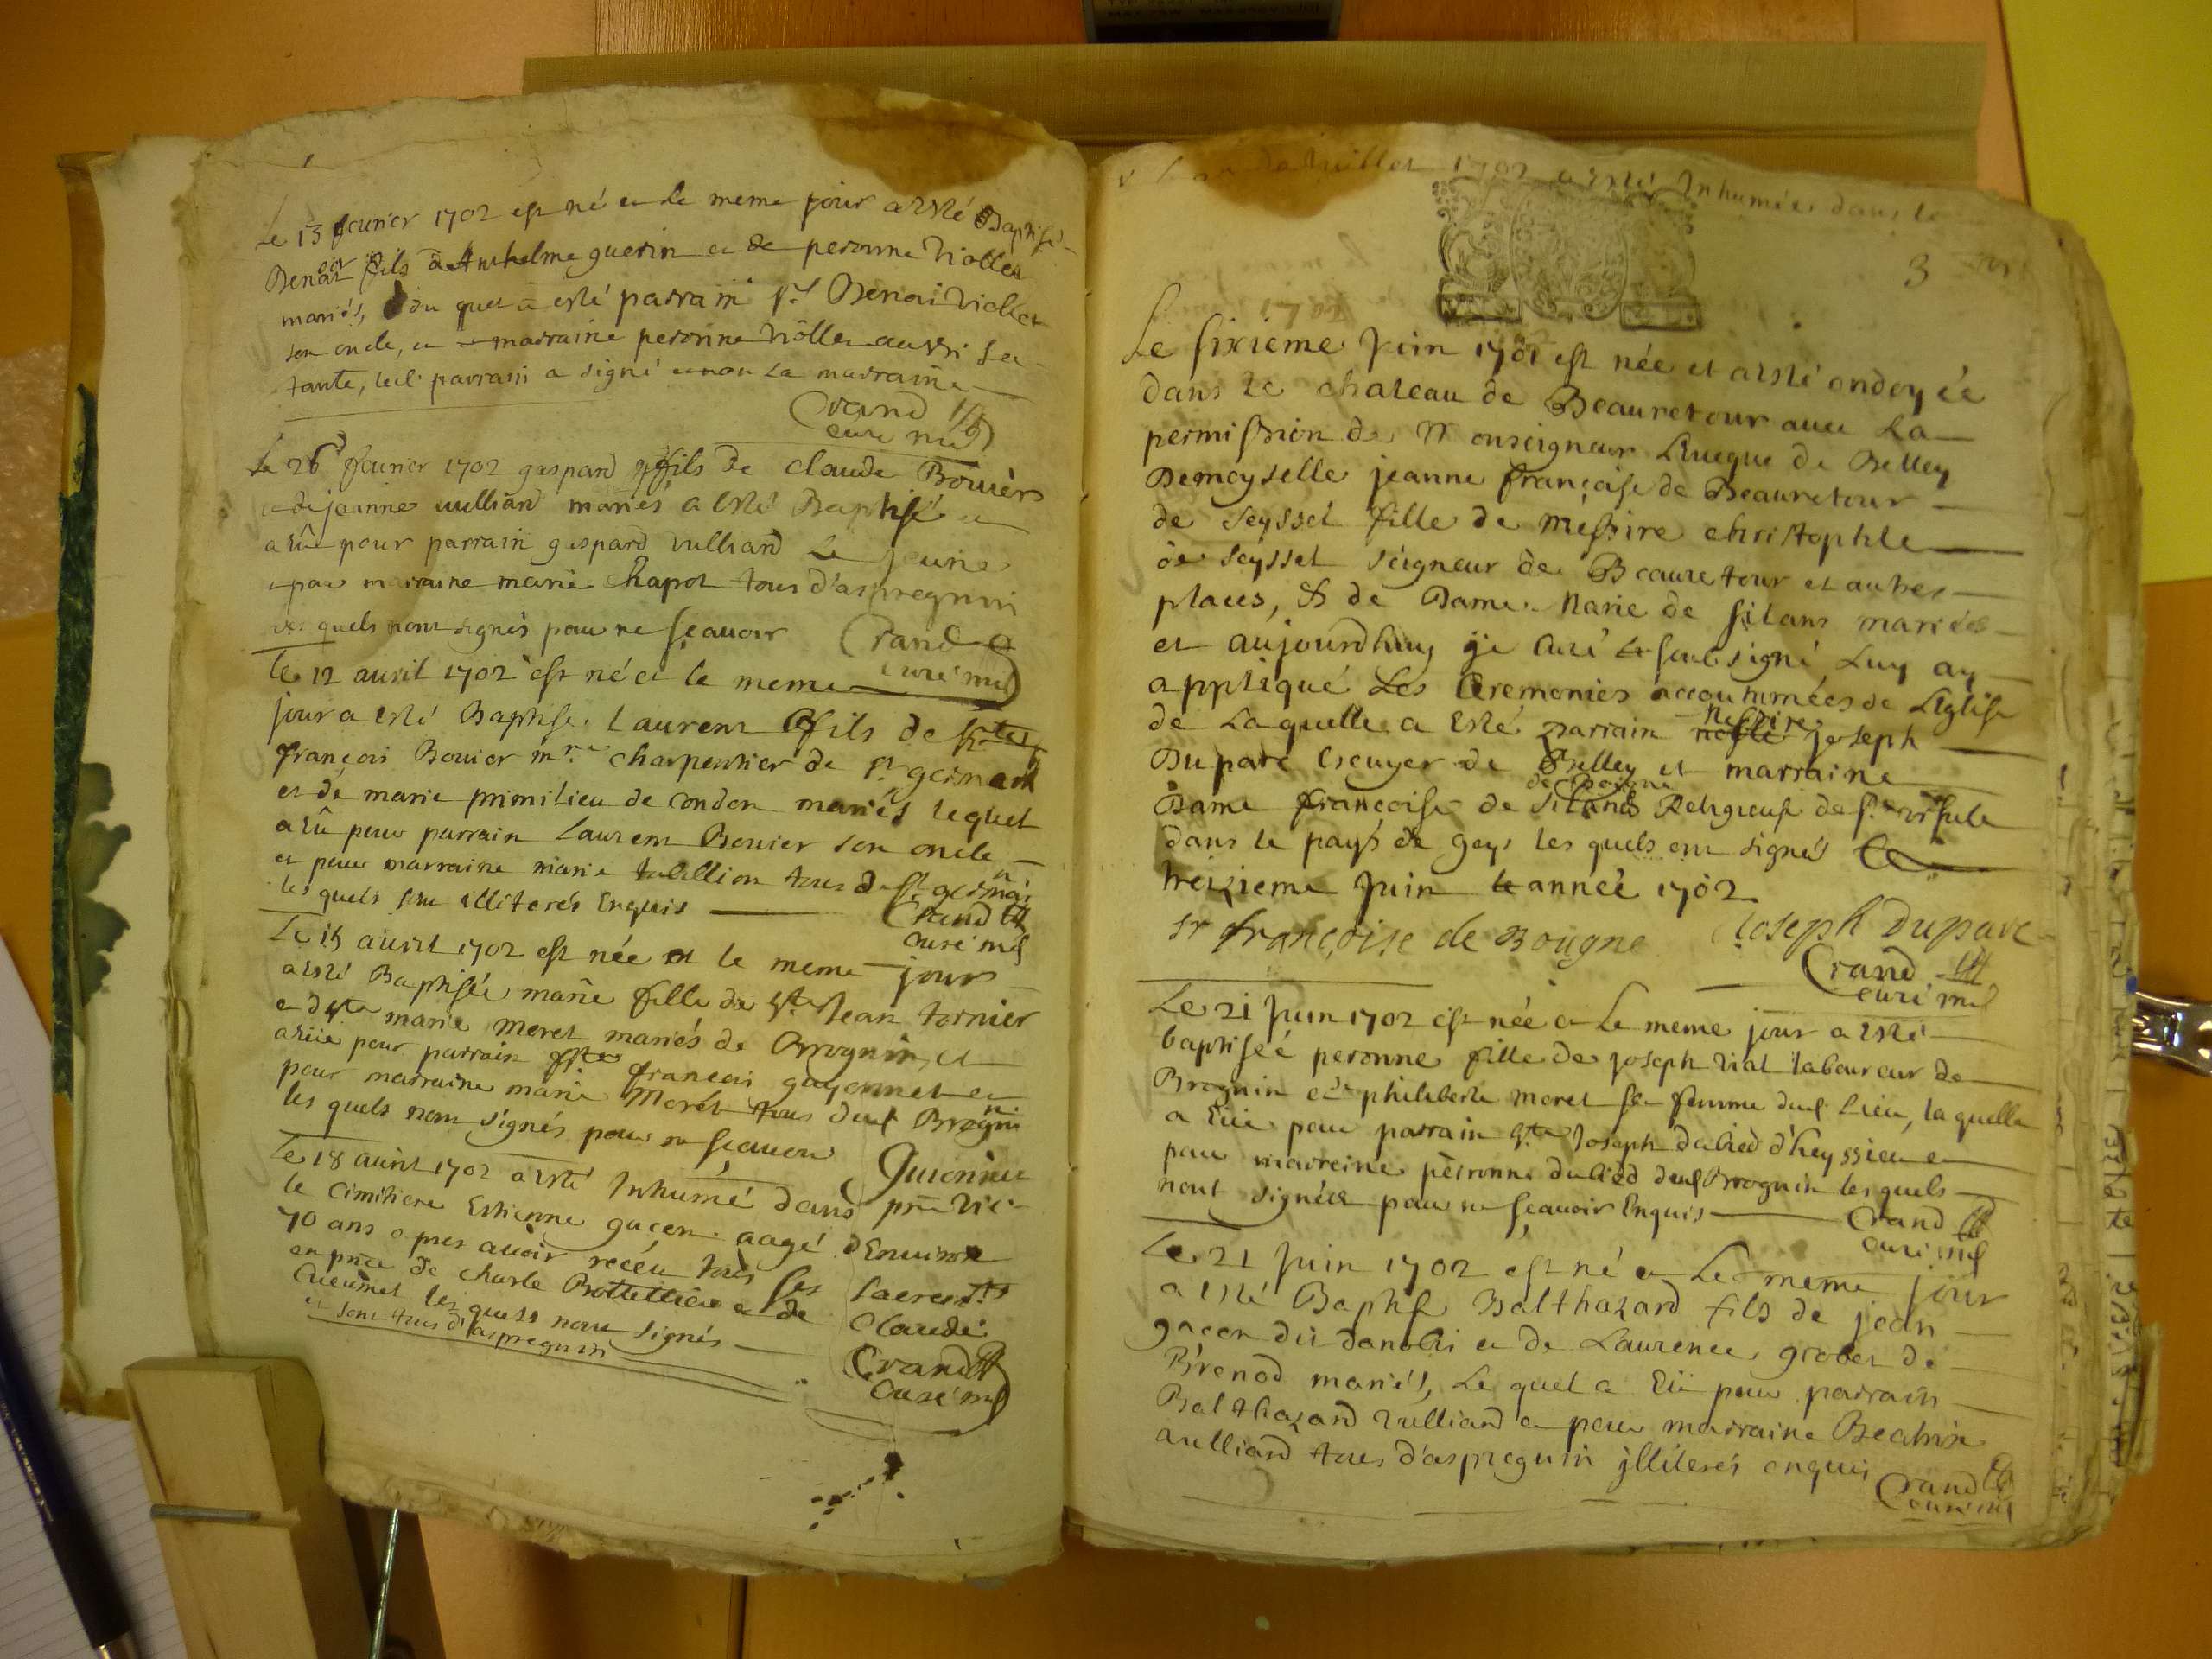 Le 13 feurier 1702 est né et le meme jour a esté Baptisé
Benoit fils de Anthelme guerin et de peronne Viollet
mariés, du quel a esté parrain Sr Benoi Viollet
son oncle, et marraine peronne Viollet aussi sa
tante, led. parrain a signé et non la marraine
Crand
curé
Le 26 feurier 1702 gaspard fils de claude Bouvier
et de jeanne uulliand mariés a esté Baptisé et
a eû pour parrain gaspard vulliand le jeune
et pour marraine marie Chapot tous d'aspregnin
les quels nont signés pour ne sçauoir Crand
curé
Le 12 auril 1702 est né et le meme
jour a esté Baptise Laurent fils de
françois Bouier mre charpentier de St germain
et de marie primilieu de condon mariés lequel
a eû pour parrain Laurent Bouier son oncle
et pour marraine marie tous de St germain
les quels sont illiterés Enquis Crand
curé
Le 15 auril 1702 est née et le meme jour
a esté Baptisée marie fille de Jean tornier
et marie moret mariés de Brognin, et
a eüe pour parrain françois guyonnet et
pour marraine marie Moret tous de Brognin
les quels nont signés pour ne sçauoir
Guionnet
Le 18 auril 1702 a esté Inhumé dans
le Cimitiere Estienne gacon aagé d'Enuiron
70 ans apres auoir recéu tous ses sacrents
en pnce de charle et de Claude
les quels nont signés
et sont tous d'aspregnin Crand
Curé
de Juillet 1702 a esté Inhumée dans le
3
Le sixieme Juin 1702 est née et a esté ondoyée
dans le chateau de Beauretour auec La
permission de Monseigneur L'Eueque de Belley
Demoyselle jeanne françoise de Beauretour
de seyssel fille de messire christophle
de seyssel seigneur de Beauretour et autres
places, & de Dame Marie de silans mariés
et aujourdhuy je Curé soubsigné Luy ay
appliqué Les Ceremonies accoutumées de L'Eglise
de Laquelle a Esté parrain noble Messire joseph
Duparc Escuyer de Belley et marraine
Dame françoise de silans de Bougne Religieuse de Ste Vrsule
dans le pays de gex les quels ont signés Le
treizieme Juin année 1702
sr françoise de Bougne Joseph Duparc
Crand
curé
Le 21 Juin 1702 est née et Le meme jour a esté
baptiseé peronne fille de joseph vial laboureur de
Brognin et philiberte moret sa femme dud. Lieu, la quelle
a Eüe pour parrain Joseph dubied d'heyssieu et
pour marreine peironne dubied Brognin les quels
nont signés pour ne sçauoir Enquis Crand
curé
Le 21 Juin 1702 est né et Le meme jour
a esté Baptisé Balthazard fils de jean
gacon et de Laurence de
Brenod mariés, Le quel a Eü pour parrain
Balthazard vulliand et pour marraine Beatrix
uulliand tous d'aspregnin jlliterés enquis Crand
curé